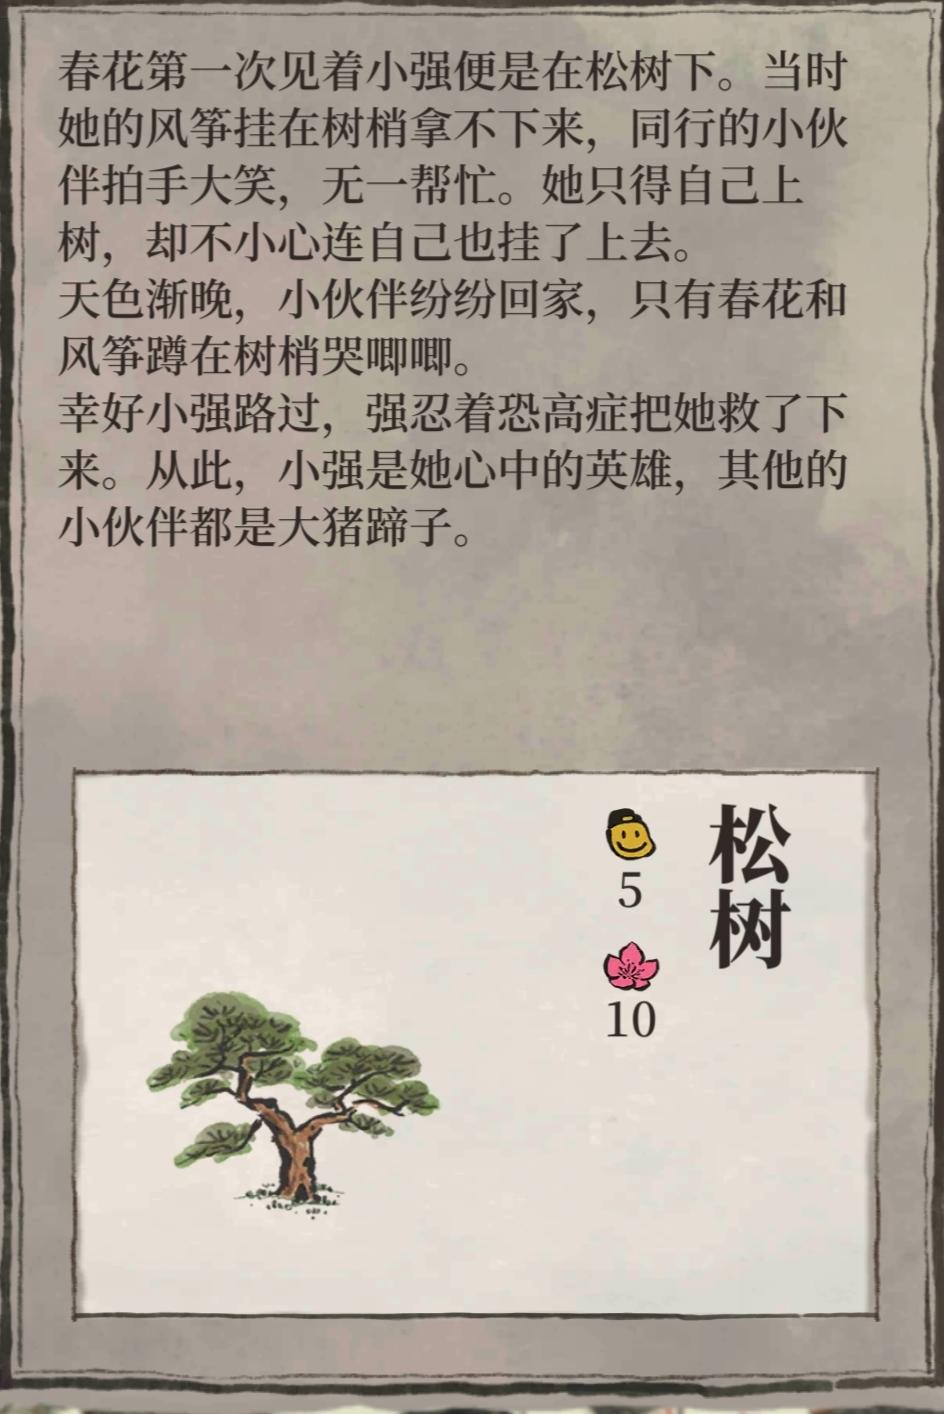 春花第一次见着小强便是在松树下。当时
她的风筝挂在树梢拿不下来，同行的小伙
伴拍手大笑，无一帮忙。她只得自己上
树，却不小心连自己也挂了上去。
天色渐晚，小伙伴纷纷回家，只有春花和
风筝蹲在树梢哭唧唧。
幸好小强路过，强忍着恐高症把她救了下
来。从此，小强是她心中的英雄，其他的
小伙伴都是大猪蹄子。
松树
5
10